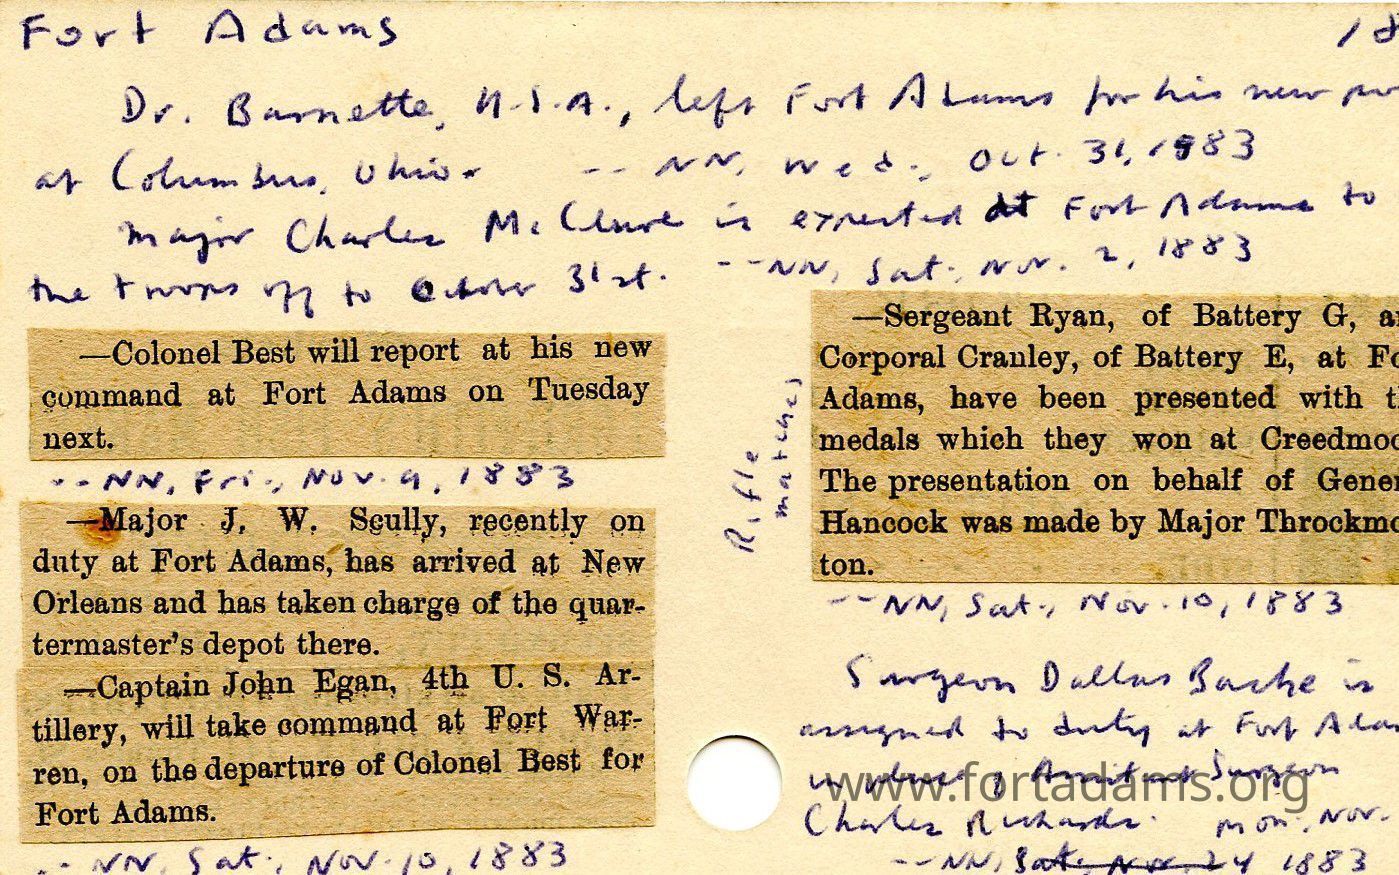 Fort Adams 18
Dr. Barnette, U.S.A., left Fort Adams for his new
at Columbus, Ohio. -- NN, Wed., Oct. 31, 1983
Major Charles McClure is expected at Fort Adams to
the troops off to October 31st. -- NN, Sat., Nov. 2, 1883
—Colonel Best will report at his new
command at Fort Adams on Tuesday
next.
-- NN, Fri., Nov. 9, 1883
—Major J. W. Scully, recently on
duty at Fort Adams, has arrived at New
Orleans and has taken charge of the quar-
termaster's depot there.
—Captain John Egan, 4th U. S. Ar-
tillery, will take command at Fort War-
ren, on the departure of Colonel Best for
Fort Adams.
-- NN, Sat., Nov. 10, 1883
Rifle
matches
—Sergeant Ryan, of Battery G, a
Corporal Cranley, of Battery E, at Fo
Adams, have been presented with t
medals which they won at Creedmoo
The presentation on behalf of Gener
Hancock was made by Major Throckmo
ton.
-- NN, Sat., Nov. 10, 1883
Surgeon Dallas Bache is
assigned to duty at Fort Adam
in place of Assistant Surgeon
Charles Richards. Mon., Nov.
-- NN, Sat., Nov. 24 1883
www.fortadams.org